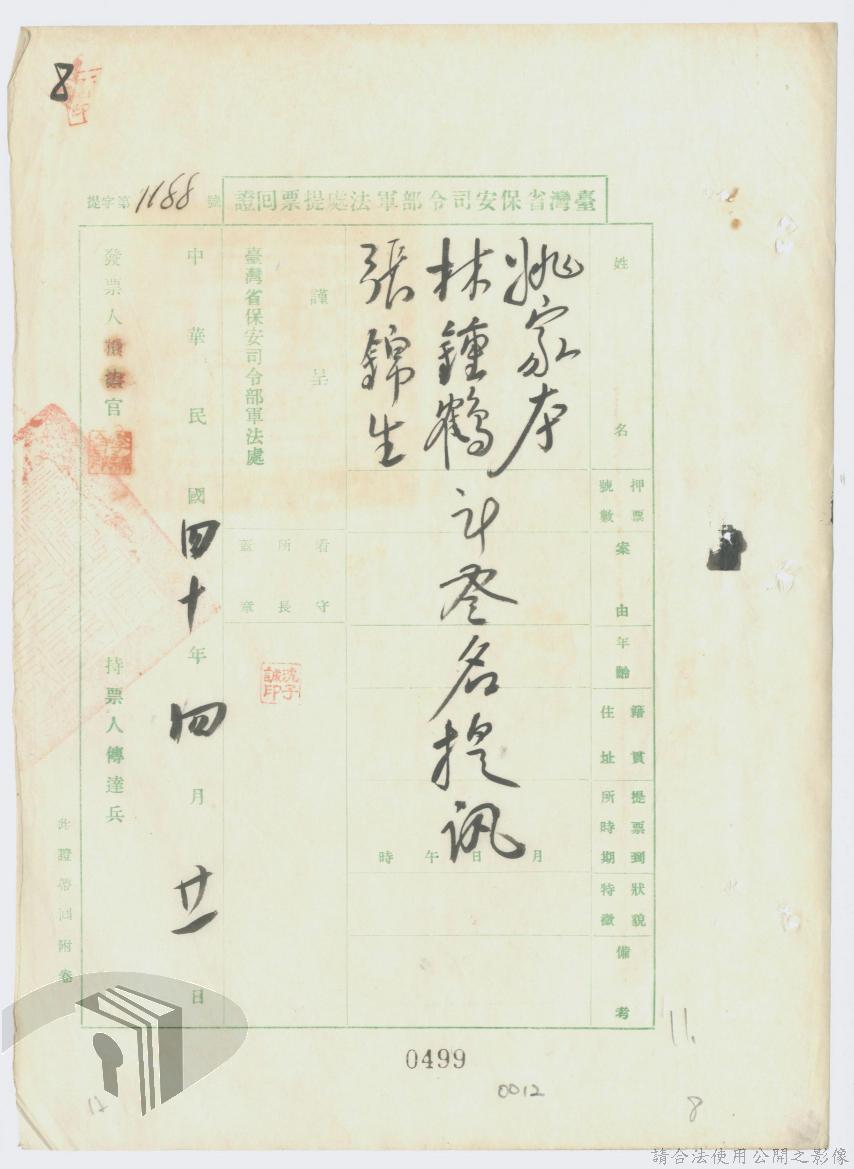 8
臺灣省保安司令部軍法處提票回證
提字第1188號
姓名
押票號數
案由
年齡
籍貫住址
提票到所時期
狀貌特徵
備考
姚家本
林鍾鶴
張錦生
計叁名提訊
月日午時
謹呈
臺灣省保安司令部軍法處
看守所長蓋章
沈子誠印
中華民國四十年四月廿一日
發票人 官
持票人傳達兵
此證帶回附卷
11.
0499
0012
12
8
請合法使用公開之影像